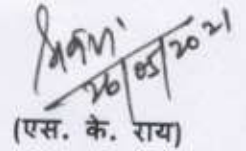 26/05/2021
(एस. के. राय)